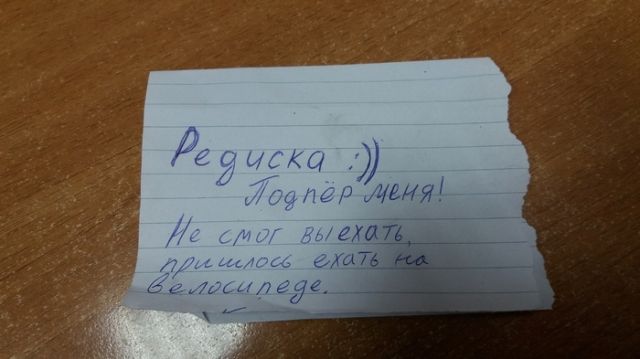 Редиска :))
Подпёр меня!
Не смог выехать,
пришлось ехать на
велосипеде.